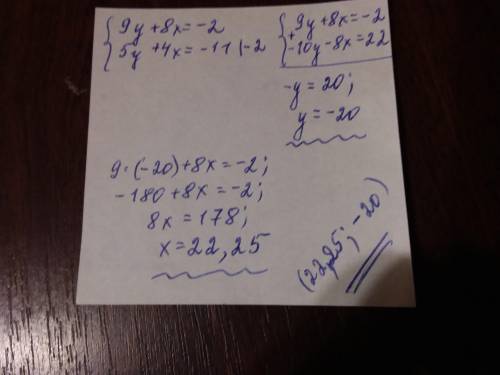 {9y + 8x = -2
{5y + 4x = -11 | -2
{+ 9y + 8x = -2
{-10y - 8x = 22
-y = 20;
y = -20
9 · (-20) + 8x = -2;
-180 + 8x = -2;
8x = 178;
x = 22,25
(22,25; -20)